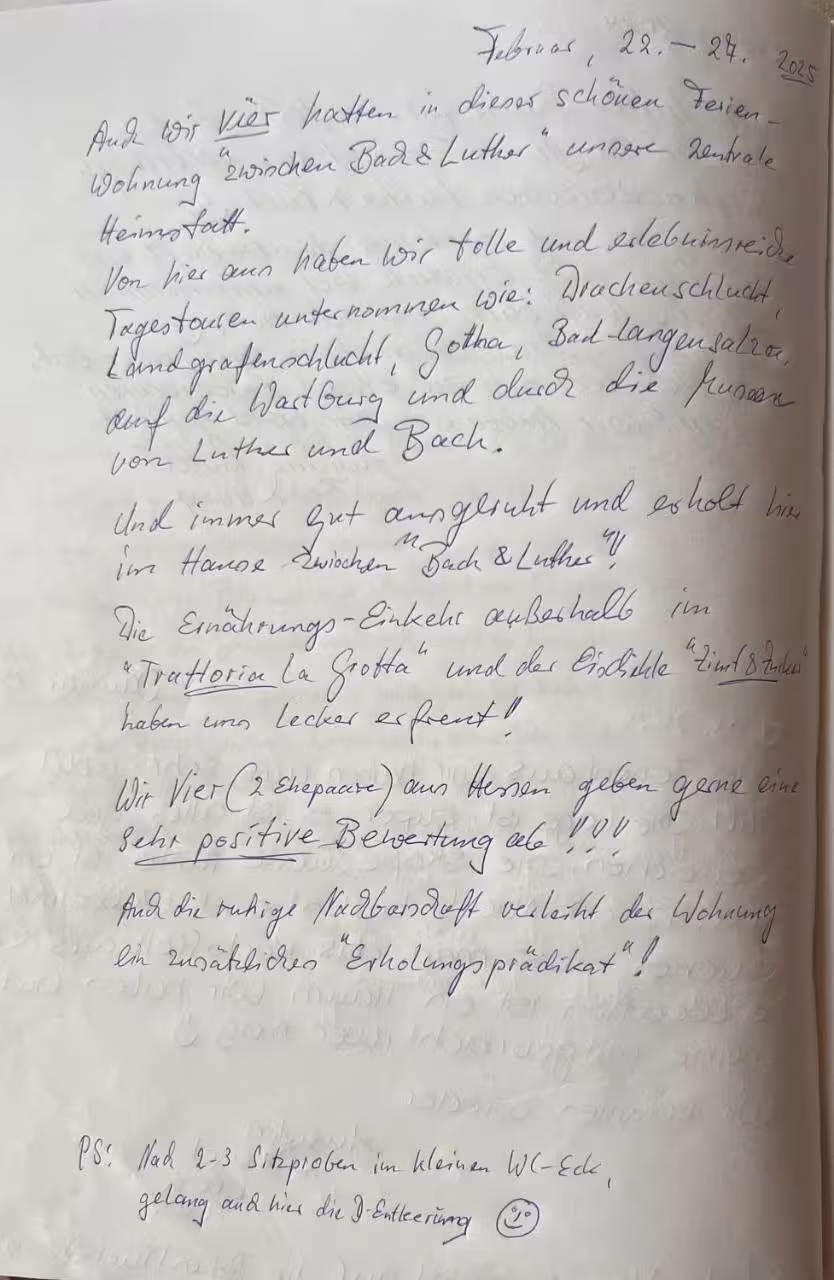 Februar, 22. – 27. 2025
Auch wir vier hatten in dieser schönen Ferien-
wohnung "zwischen Bach & Luther" unsere zentrale
Heimstatt.
Von hier aus haben wir tolle und erlebnisreiche
Tagestouren unternommen wie: Drachenschlucht,
Landgrafenschlucht, Gotha, Bad-Langensalza,
auf die Wartburg und durch die Museen
von Luther und Bach.
Und immer gut ausgeruht und erholt hier
im Hause zwischen "Bach & Luther"!!
Die Ernährungs-Einkehr außerhalb im
"Trattoria La Grotta" und der Eisdiehle "Zimt & Zucker"
haben uns lecker erfreut!!
Wir Vier (2 Ehepaare) aus Hessen geben gerne eine
sehr positive Bewertung ab !!!!
Auch die ruhige Nachbarschaft verleiht der Wohnung
ein zusätzliches "Erholungsprädikat"!
PS: Nach 2-3 Sitzproben im kleinen WC-Eck,
gelang auch hier die D-Entleerung